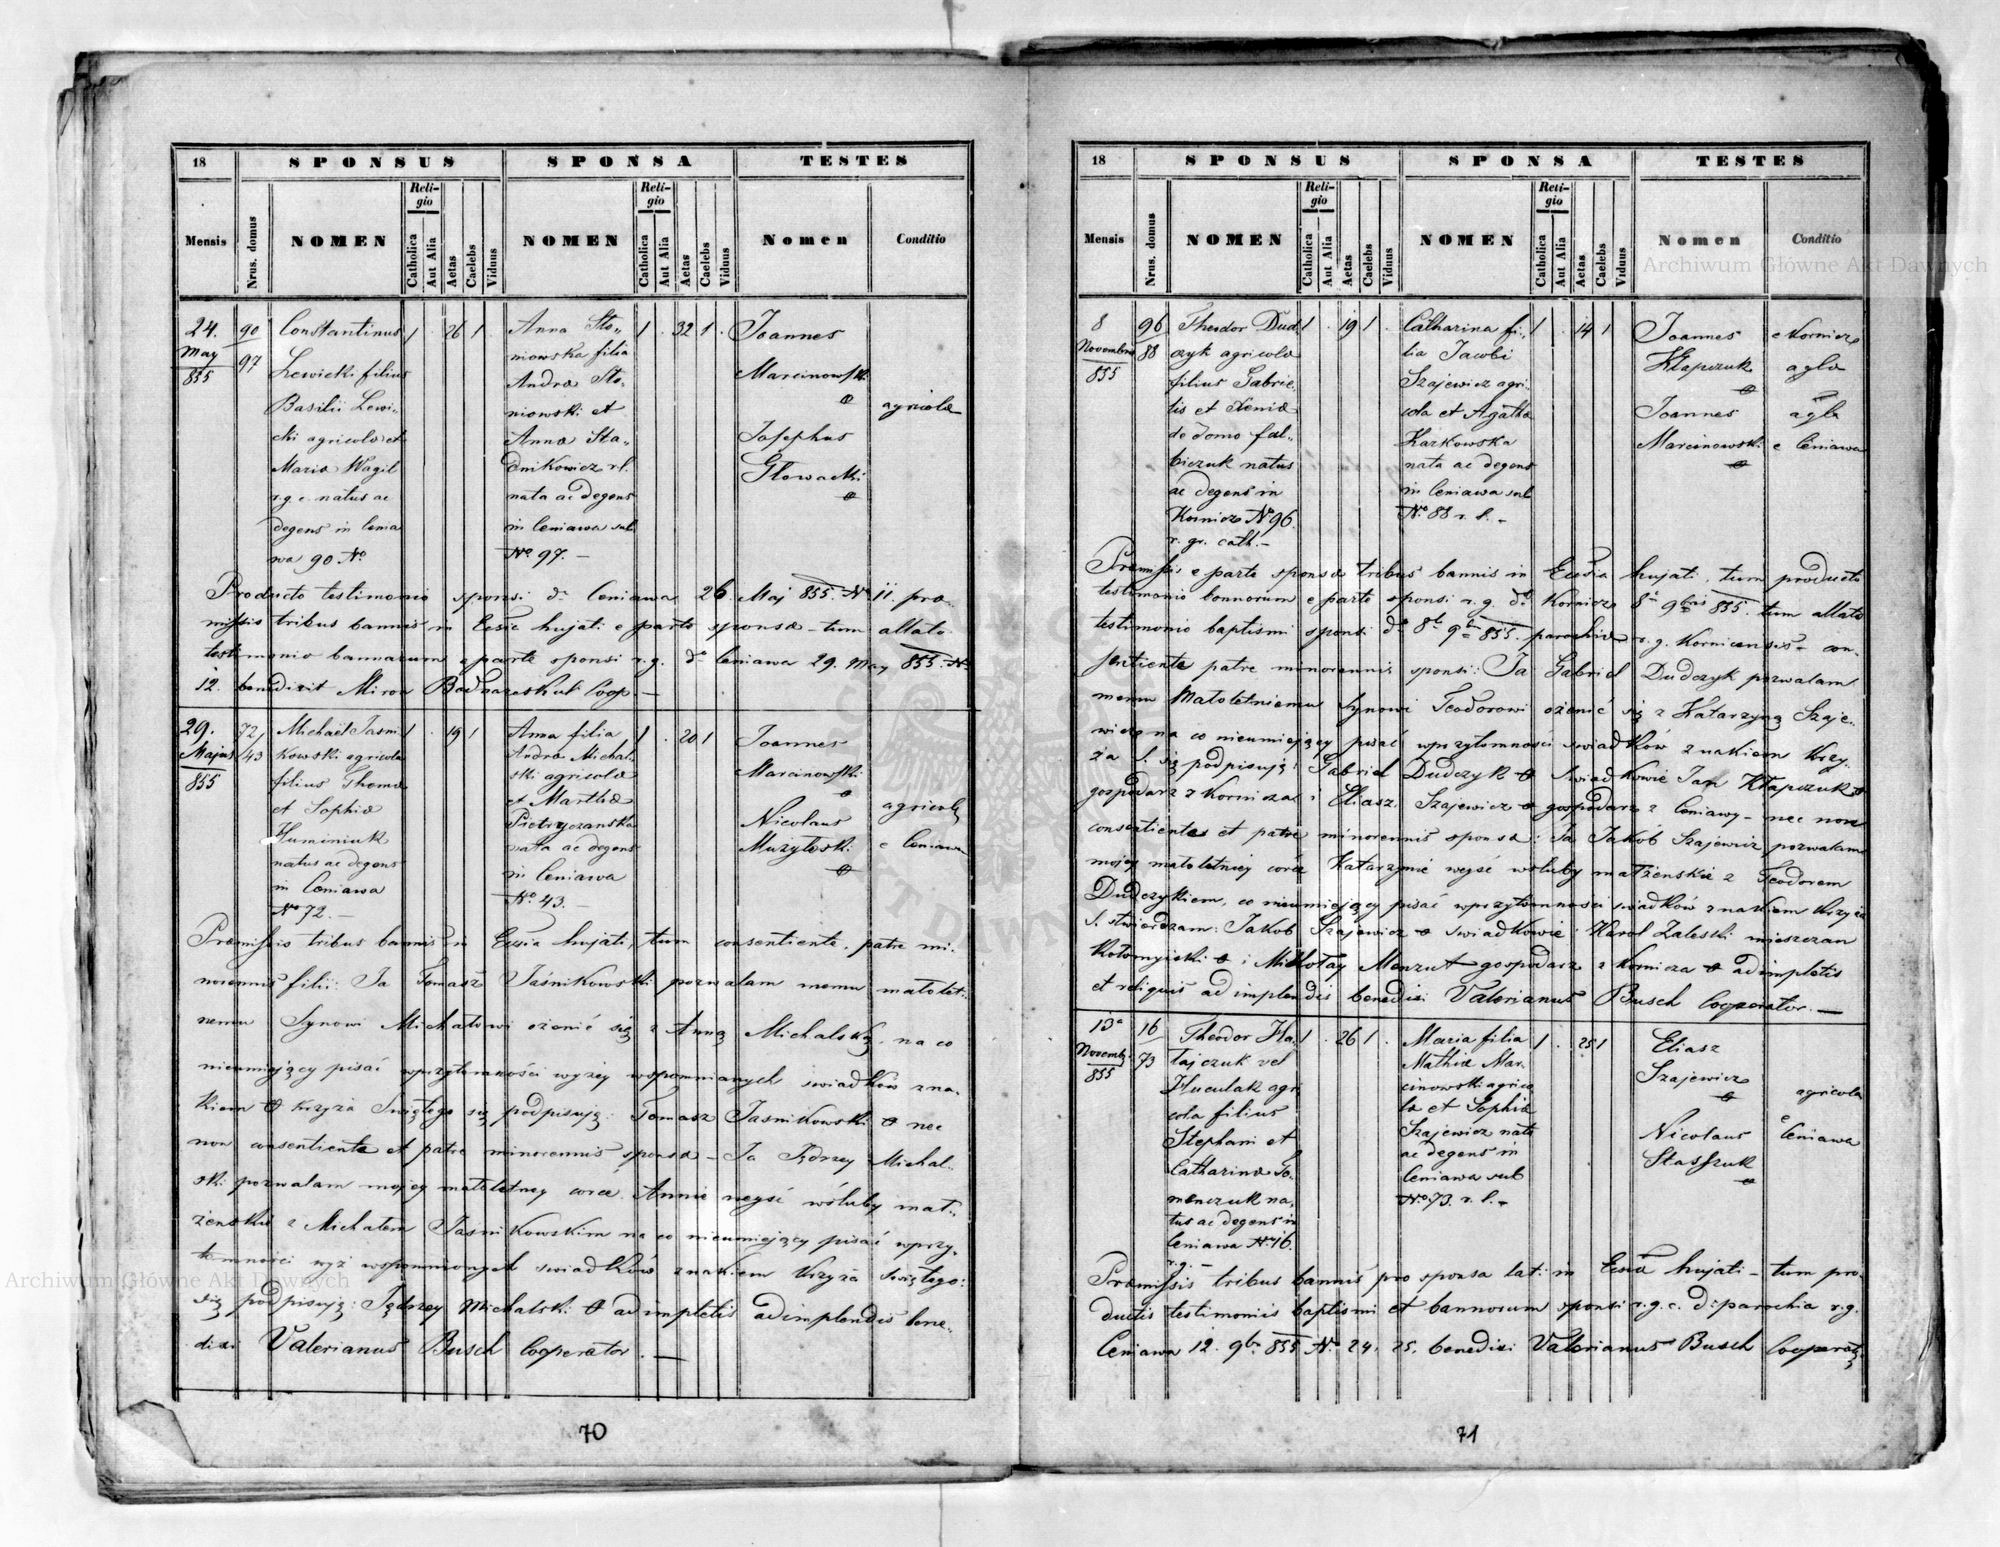 18 SPONSUS SPONSA TESTES
Mensis Nrus. domus NOMEN Religio Catholica Aut Alia Aetas Caelebs Viduus NOMEN Religio Catholica Aut Alia Aetas Caelebs Viduus Nomen Conditio
24.
May
855
90
97
Constantinus
Lewicki filius
Basilii Lewi-
cki agricola et
Maria Wagil
r.g.c. natus ac
degens in Cenia
wa 90 No
1 . 26 1
Anna Sto-
niowska filia
Andreæ Sto-
niowski et
Anna Sta-
dnikowicz r.l.
nata ac degens
in Ceniawa sub
No 97. —
1 . 32 1 .
Joannes
Marcinowski
Josephus
Głowacki
agricolæ
Producto testimonio sponsi dto Ceniawa 26. Maj 855. No 11. præ-
missis tribus bannis in Ecclia hujati e parte sponsæ – tum allato
testimonio bannorum e parte sponsi r.g. dto Ceniawa 29. May 855. No
12. benedixit Miron Coop. —
29.
Majus
855
72,
43
Michael Jasni
kowski agricola
filius Thomæ
et Sophiæ
Huminiuk
natus ac degens
in Ceniawa
No 72. —
1 . 19 1
Anna filia
Andreæ Michal-
ski agricolæ
et Marthæ
Pietryczanska
nata ac degens
in Ceniawa
No 43. —
1 . 20 1
Joannes
Marcinowski
Nicolaus
Muzyłoski
agricolæ
e Ceniawa
Præmissis tribus bannis in Ecclia hujati, tum consentiente, patre mi-
norennis filii: Ja Tomasz Jaśnikowski pozwalam memu małolet-
niemu Synowi Michałowi ożenić się z Anną Michalską, na co
nieumiejący pisać wprzytomności wyżey wspomnianych swiadków zna-
kiem krzyża Swiętego się podpisuję: Tomasz Jasnikowski nec
non consentiente et patre minorennis sponsæ – Ja Jędrzey Michal-
ski pozwalam mojey małoletney córce Annie wejść wśluby mał-
żenskie z Michałem Jasnikowskim na co nieumiejący pisać wprzy-
tomności wyż wspomnionych swiadków znakiem krzyża Swiętego:
się podpisuję: Jędrzey Michalski adimpletis adimplendis bene-
dixi Valerianus Busch Cooperator. —
70
18 SPONSUS SPONSA TESTES
Mensis Nrus. domus NOMEN Religio Catholica Aut Alia Aetas Caelebs Viduus NOMEN Religio Catholica Aut Alia Aetas Caelebs Viduus Nomen Conditio
8
Novembris
855
96
88
Theodor Dud
czyk agricola
filius Gabrie-
lis et Xeniæ
de domo fal-
biczuk natus
ac degens in
Kornicz No 96.
r. gr. cath. —
1 . 19 1 .
Catharina fi-
lia Jacobi
Szajewicz agri-
cola et Agatha
Karkowska
nata ac degens
in Ceniawa sub
No 88 r. l. —
1 . 14 1
Joannes
Kłapczuk
Joannes
Marcinowski
e Kornicz
agla
agla
e Ceniawa
Præmissis e parte sponsæ tribus bannis in Ecclia hujati, tum producto
testimonio bannorum e parte sponsi r.g. dto Kornicz 8a 9bris 855. tum allato
testimonio baptismi sponsi dto 8a 9bris 855. parochiæ r.g. Kornicensis – con-
sentiente patre minorennis sponsi: Ja Gabriel Dudczyk pozwalam
memu Małoletniemu Synowi Teodorowi ożenić się z Katarzyną Szaje-
wicz, na co nieumiejący pisać wprzytomności swiadków znakiem krzy-
ża S. się podpisuję: Gabriel Dudczyk Swiadkowie Jan Kłapczuk
gospodarz z Kornicza i Eliasz Szajewicz gospodarz z Ceniawy – nec non
consentiente et patre minorennis sponsæ: Ja Jakób Szajewicz pozwalam
mojey małoletniey córce Katarzynie wejść wśluby małżenskie z Teodorem
Dudczykiem, co nieumiejący pisać wprzytomności swiadków znakiem krzyża
S. stwierdzam: Jakob Szajewicz swiadkowie: Karol Zaleski mieszczan
Kołomyjski i Mikołay Menzut gospodarz z Kornicza adimpletis
et reliquis adimplendis benedixi Valerianus Busch Cooperator. —
13a
Novemb.
855
16
73
Theodor Ha-
tajczuk vel
Huculak agri
cola filius
Stephani et
Catharinæ Se-
menczuk na-
tus ac degens in
Ceniawa No 16.
r.g. —
1 . 26 1 .
Maria filia
Mathiæ Mar-
cinowski agrico
la et Sophiæ
Szajewicz nata
ac degens in
Ceniawa sub
No 73. r. l. —
1 . 25 1
Eliasz
Szajewicz
Nicolaus
Stasszuk
agricolæ
e
Ceniawa
Præmissis tribus bannis pro sponsa lat: in Ecclia hujati – tum pro-
ductis testimoniis baptismi et bannorum sponsi r.g.c. d: parochia r.g.
Ceniawa 12. 9br. 855 No 24, 25, benedixi Valerianus Busch Cooperat.
71
Archiwum Główne Akt Dawnych
Archiwum Główne Akt Dawnych